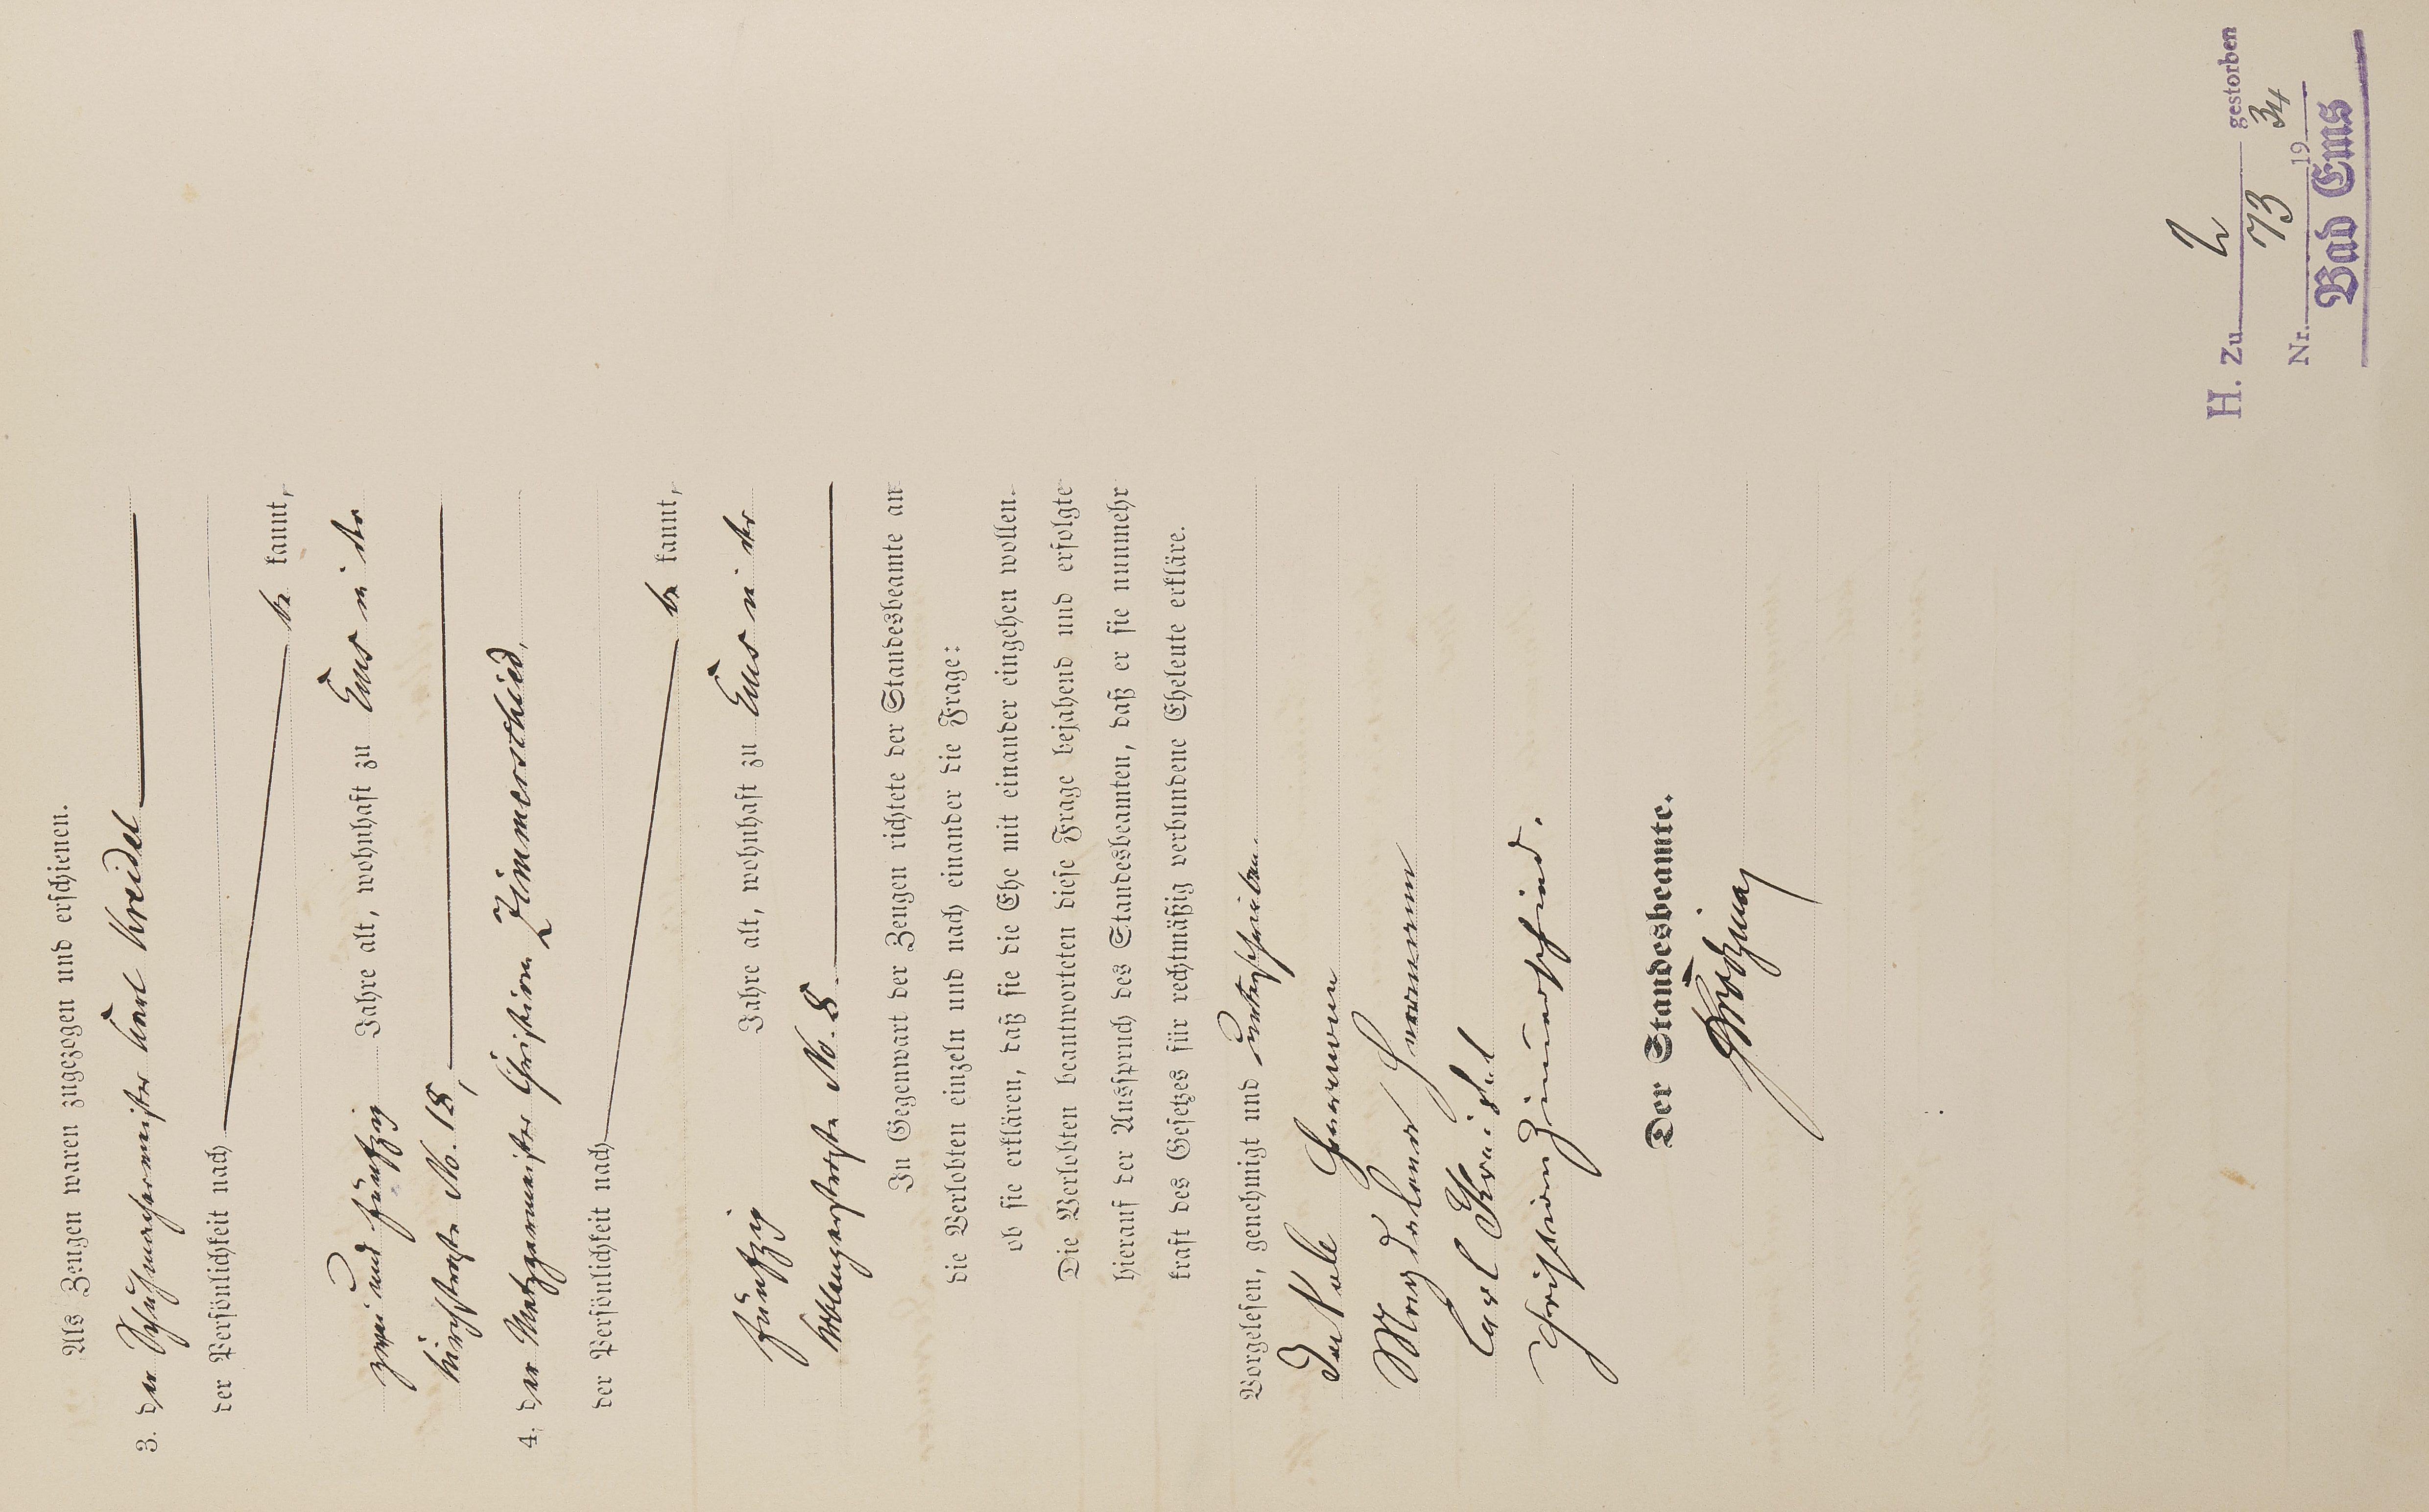 Als Zeugen waren zugezogen und erschienen.
3. der Schuhmachermeister Karl Kreidel
der Persönlichkeit nach
be kannt,
zwei und fünfzig Jahre alt, wohnhaft zu Ems in der
Kirchstraße No. 18,
4. der Metzgermeister Christian Zimmerschied,
der Persönlichkeit nach
be kannt,
fünfzig Jahre alt, wohnhaft zu Ems in der
Koblenzerstraße No. 8.
In Gegenwart der Zeugen richtete der Standesbeamte an
die Verlobten einzeln und nach einander die Frage:
ob sie erklären, daß sie die Ehe mit einander eingehen wollen.
Die Verlobten beantworteten diese Frage bejahend und erfolgte
hierauf der Ausspruch des Standesbeamten, daß er sie nunmehr
kraft des Gesetzes für rechtmäßig verbundene Eheleute erkläre.
Vorgelesen, genehmigt und unterschrieben.
Magdalena
Carl Kreidel
Christian Zimmerschied.
Der Standesbeamte.
H. Zu gestorben
Nr. 73 19 34
Bad Ems